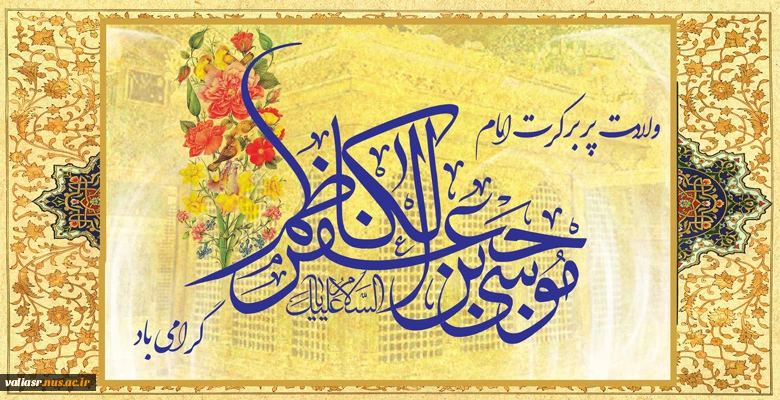 ولادت پر برکت امام
موسی بن جعفر الکاظم
السلام علیک
گرامی باد
valiasr.nus.ac.ir